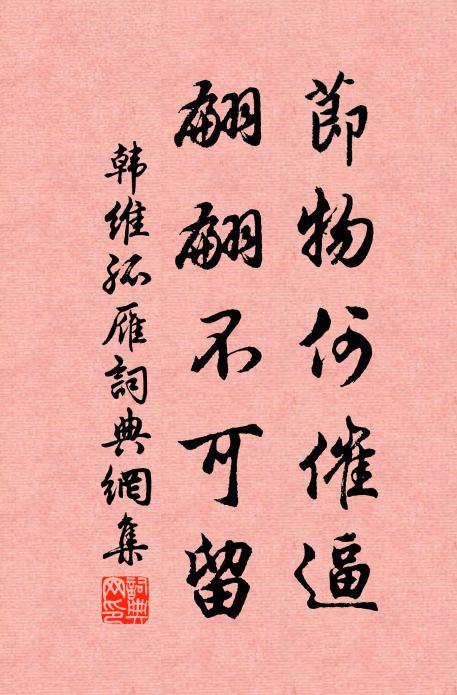 節物何催逼
翩翩不可留
韩维孤雁詞典網集
詞典
网印